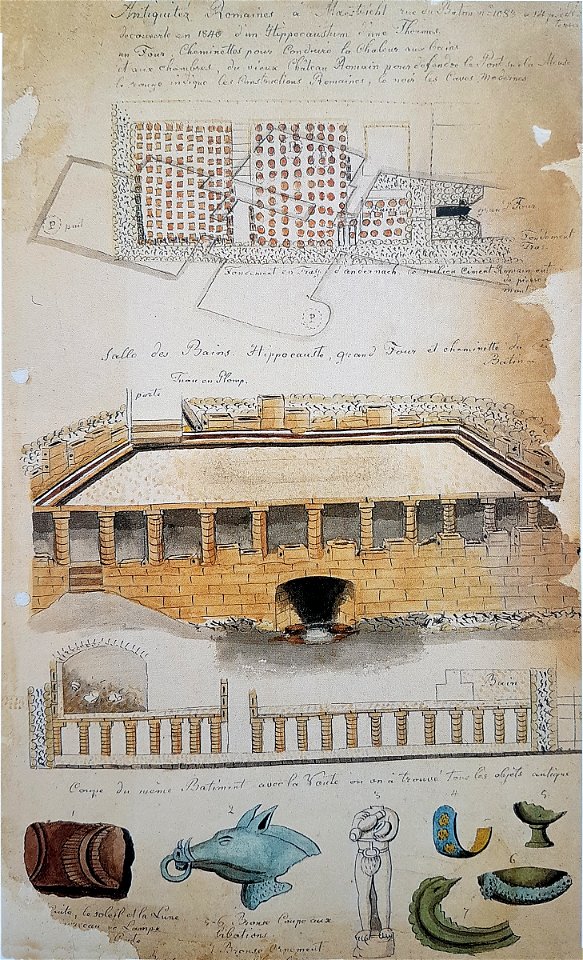 Antiquitéz Romaines a Maestricht rue du Baton nº 1088
découverte en 1840 d'un Hippocaustum d'une Thermes.
un Four, Cheminettes pour Conduire la Chaleur aux bains
et aux chambres du vieux Château Romain pour défendre le Pont sur la Meuse
le rouge indique les Constructions Romaines, le noir les Caves modernes
P puit
grand Four
Fondement
Tras
Fondement en Trass d'andernach
P
Salle des Bains Hippocauste, grand Four et cheminette du
Tuau en Plomp.
porte
Bain
Coupe du même Batiment avec la Voute ou on a trouvé Tous les objets antique
1 2 3 4 5
6
7
le soleil et la Lune
Lampe
Bronse Coupe aux
libations
Bronse Ornement